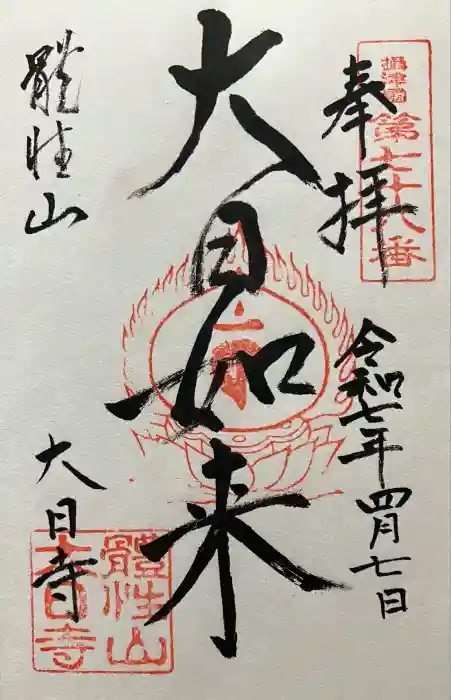 奉拝
摂津国
第七十八番
令和七年四月七日
大日如来
體性山
大日寺
體性山
大日寺